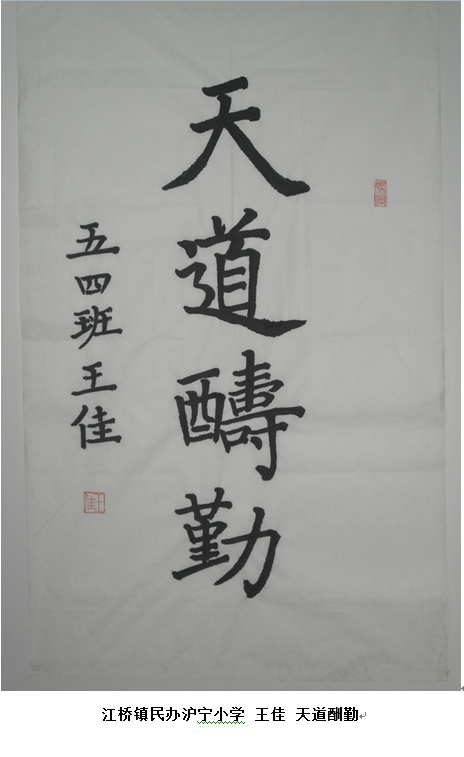 天道醻勤
五四班王佳
王佳
江桥镇民办沪宁小学 王佳 天道酬勤